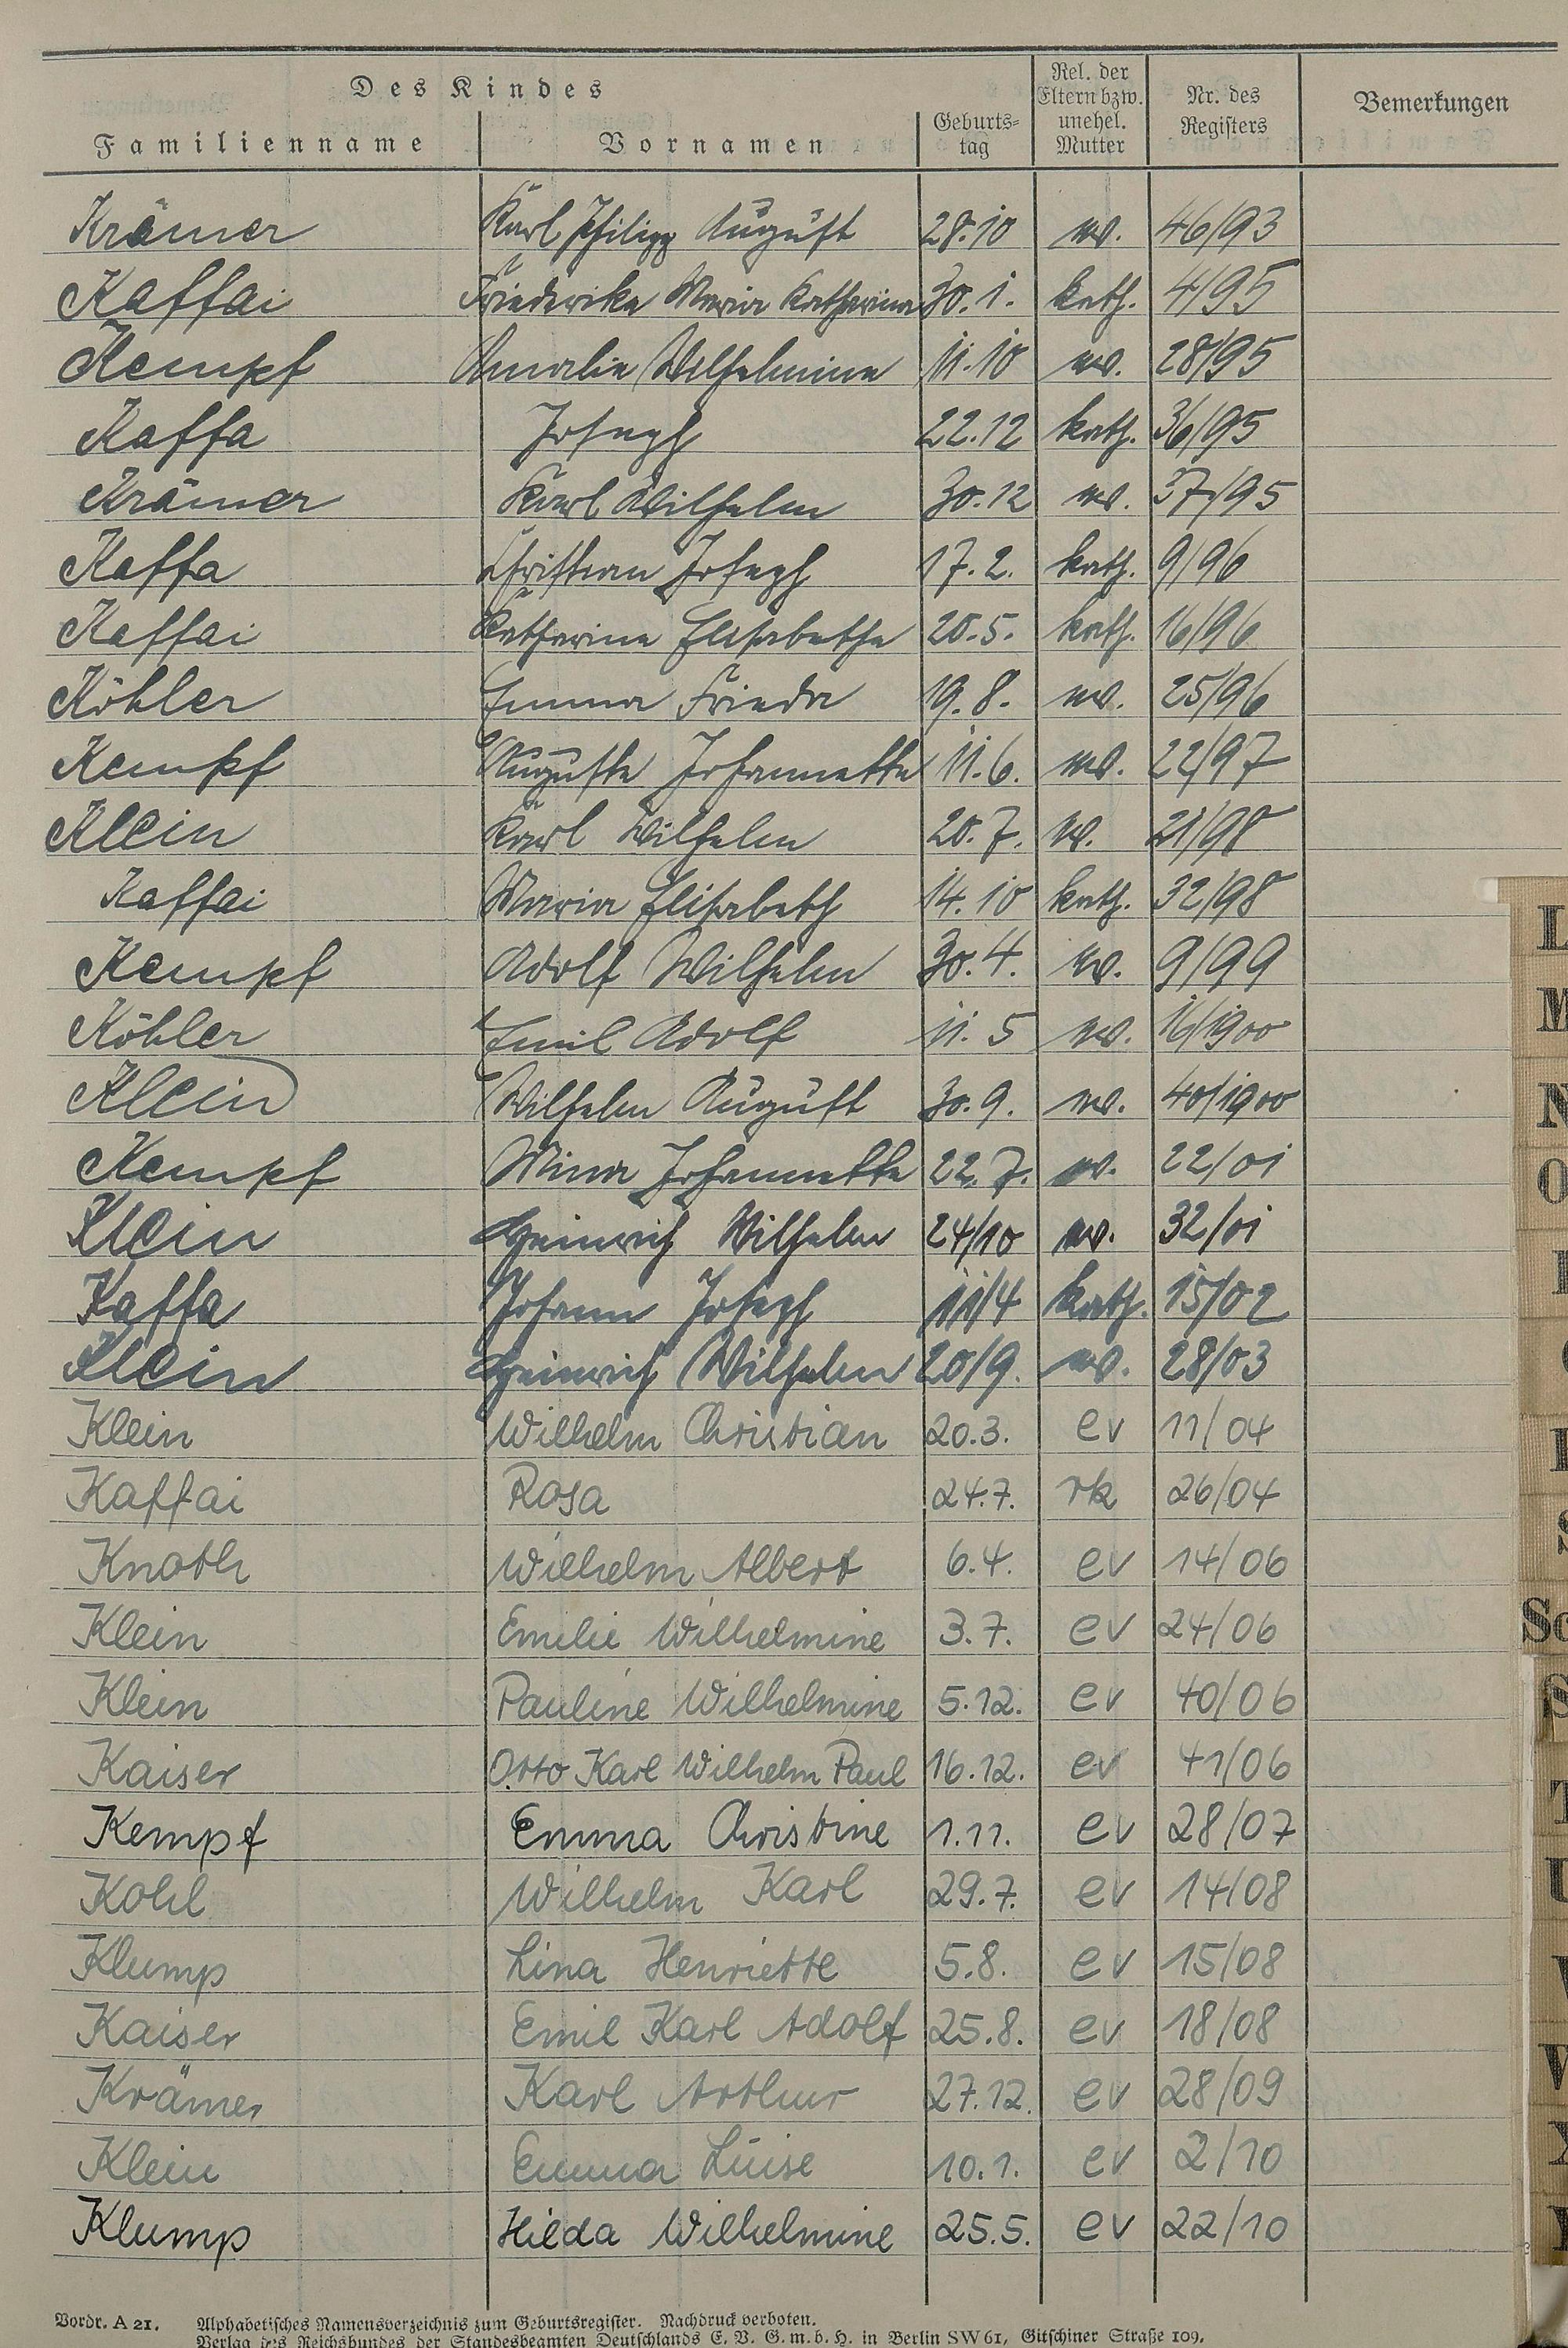 Des Kindes
Familienname Vornamen Geburts=tag Rel. der Eltern bzw. unehel. Mutter Nr. des Registers Bemerkungen
Krämer Karl Philipp August 28.10 ev. 46/93
Kaffai Friederike Maria Katharina 30.1. kath. 4/95
Kempf Amalie Wilhelmine 11.10 ev. 28/95
Kaffa Joseph 22.12 kath. 36/95
Krämer Karl Wilhelm 30.12 ev. 37/95
Kaffa Christian Joseph 17.2. kath. 9/96
Kaffai Katharina Elisabetha 20.5. kath. 16/96
Köhler Emma Frieda 19.8. ev. 25/96
Kempf Auguste Johannette 11.6. ev. 22/97
Klein Karl Wilhelm 20.7. ev. 21/98
Kaffai Maria Elisabeth 14.10 kath. 32/98
Kempf Adolf Wilhelm 30.4. ev. 9/99
Köhler Emil Adolf 11.5 ev. 16/1900
Klein Wilhelm August 30.9. ev. 40/1900
Kempf Mina Johannette 22.7. ev. 22/01
Klein Heinrich Wilhelm 24/10 ev. 32/01
Kaffa Johann Joseph 11/4 kath. 15/02
Klein Heinrich Wilhelm 20/9. ev. 28/03
Klein Wilhelm Christian 20.3. ev 11/04
Kaffai Rosa 24.7. rk 26/04
Knoth Wilhelm Albert 6.4. ev 14/06
Klein Emilie Wilhelmine 3.7. ev 24/06
Klein Pauline Wilhelmine 5.12. ev 40/06
Kaiser Otto Karl Wilhelm Paul 16.12. ev 41/06
Kempf Emma Christine 1.11. ev 28/07
Kohl Wilhelm Karl 29.7. ev 14/08
Klump Lina Henriette 5.8. ev 15/08
Kaiser Emil Karl Adolf 25.8. ev 18/08
Krämer Karl Arthur 27.12. ev 28/09
Klein Emma Luise 10.1. ev 2/10
Klump Hilda Wilhelmine 25.5. ev 22/10
Vordr. A 21. Alphabetisches Namensverzeichnis zum Geburtsregister. Nachdruck verboten.
Verlag des Reichsbundes der Standesbeamten Deutschlands E. V. G. m. b. H. in Berlin SW 61, Gitschiner Straße 109.
L
M
N
O
S
Sc
T
U
W
X